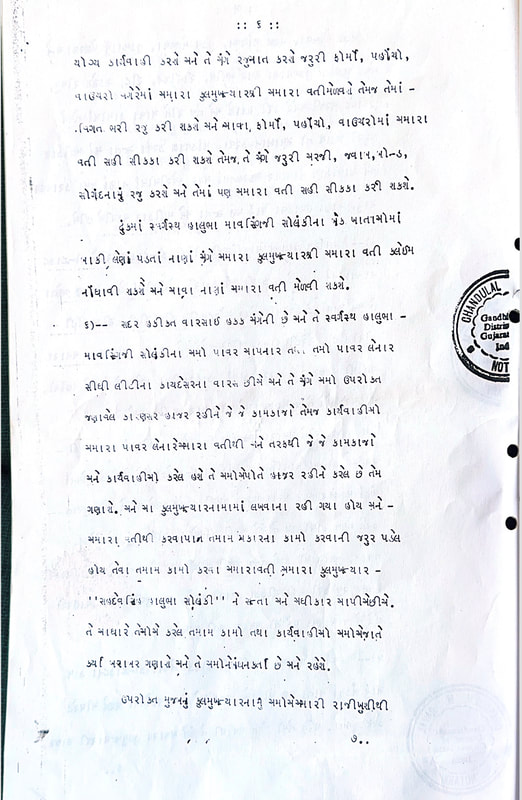 :: ૬ ::
યોગ્ય કાર્યવાહી કરશે અને તે અંગે રજુઆત કરશે જરુરી ફોર્મો, પહોંચો,
વાઉચરો વગેરેમાં અમારા કુલમુખત્યારશ્રી અમારા વતી મેળવશે તેમજ તેમાં -
વિગત ભરી રજુ કરી શકશે અને આવા, ફોર્મો, પહોંચો, વાઉચરોમાં અમારા
વતી સહી સીકકા કરી શકશે તેમજ, તે અંગે જરુરી અરજી, જવાબ, બોન્ડ,
સોગંદનામું રજુ કરશે અને તેમાં પણ અમારા વતી સહી સીકકા કરી શકશે.
ટુંકમાં સ્વર્ગસ્થ હાલુભા માવસિંગજી સોલંકીના બેંક ખાતાઓમાં
બાકી લેણાં પડતાં નાણાં અંગે અમારા કુલમુખત્યારશ્રી અમારા વતી કલેઈમ
નોંધાવી શકશે અને આવા નાણાં અમારા વતી મેળવી શકશે.
૬)-- સદર હકીકત વારસાઈ હકક અંગેની છે અને તે સ્વર્ગસ્થ હાલુભા -
માવસિંગજી સોલંકીના અમો પાવર આપનાર તમો પાવર લેનાર
સીધી લીટીના કાયદેસરના વારસ છીએ અને તે અંગે અમો ઉપરોકત
જણાવેલ કારણસર હાજર રહીને જે જે કામકાજો તેમજ કાર્યવાહીઓ
અમારા પાવર લેનારે અમારા વતીથી અને તરફથી જે જે કામકાજો
અને કાર્યવાહીઓ કરેલ હશે તે અમોએ પોતે હાજર રહીને કરેલ છે તેમ
ગણાશે. અને આ કુલમુખત્યારનામામાં લખવાના રહી ગયા હોય અને -
અમારા વતીથી કરવાપાત્ર તમામ પ્રકારના કામો કરવાની જરુર પડેલ
હોય તેવા તમામ કામો કરવા અમારાવતી અમારા કુલમુખત્યાર -
''સહદેવસિંહ હાલુભા સોલંકી'' ને સત્તા અને અધીકાર આપીએ છીએ.
તે આધારે તેઓએ કરેલ તમામ કામો તથા કાર્યવાહીઓ અમોએ જાતે
કર્યા બરાબર ગણાશે અને તે અમોને બંધનકર્તા છે અને રહેશે.
ઉપરોકત મુજબનું કુલમુખત્યારનામું અમોએ અમારી રાજીખુશીથી
૭..
DHANDULAL
Gandhi
District
Gujarat
Ind
NOT